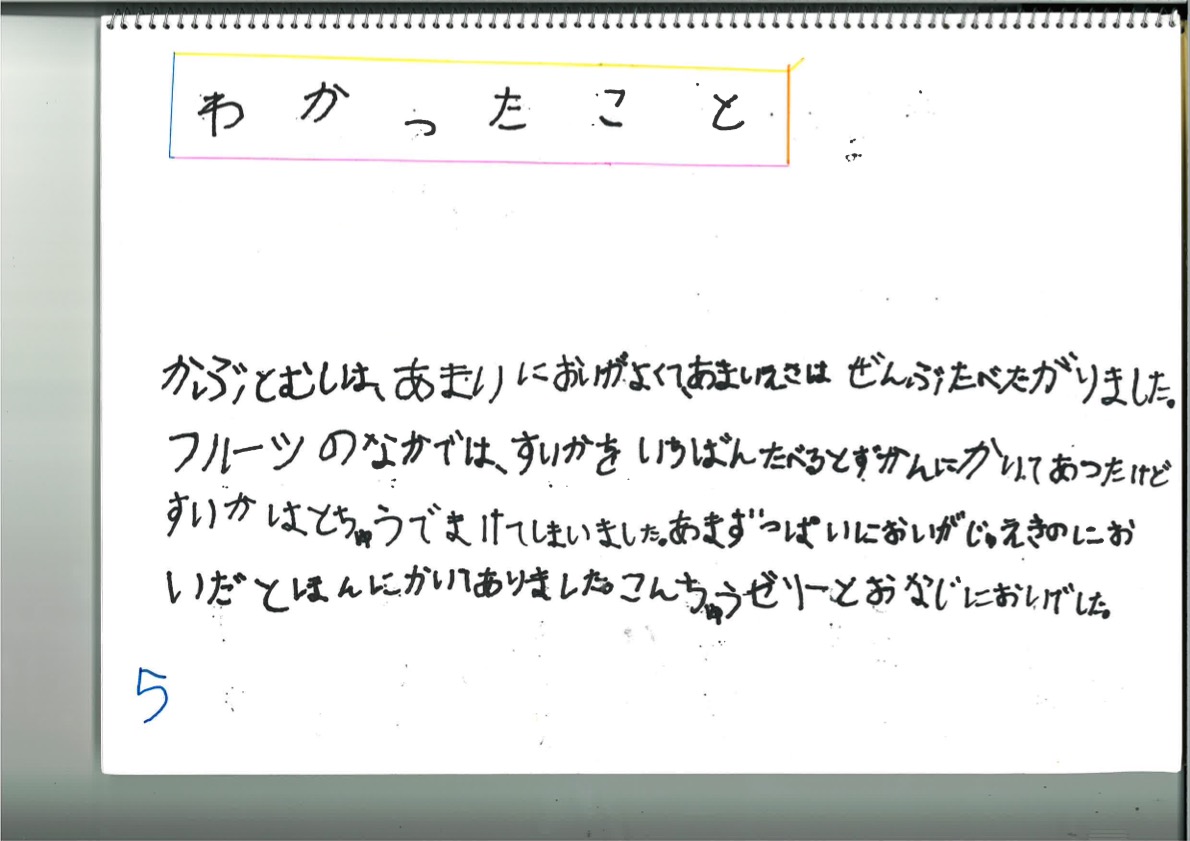 わかったこと
かぶとむしは、あまりにおいがよくて、あまいえさは ぜんぶたべたがりました。
フルーツのなかでは、すいかをいちばんたべるとずかんにかいてあったけど
すいかはとちゅうでまけてしまいました。あまずっぱいにおいがじゅえきのにお
いだとほんにかいてありました。こんちゅうぜりーとおなじにおいでした。
5